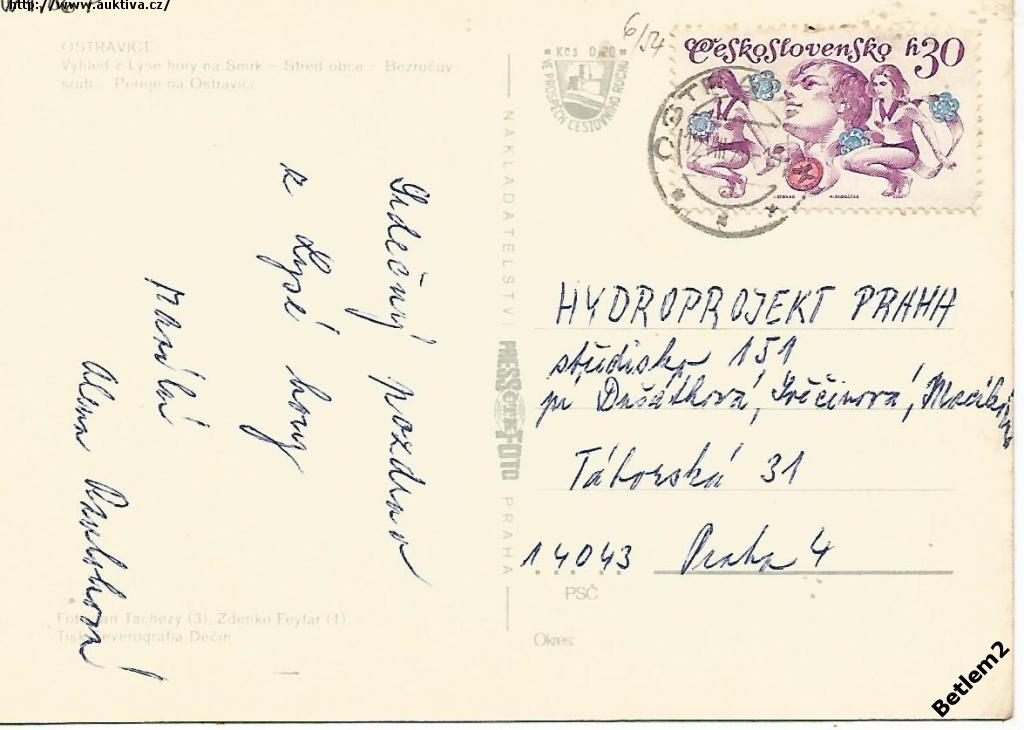 http://www.auktiva.cz/
OSTRAVICE
Výhled z Lysé hory na Smrk - Střed obce - Bezručův
srub - Peřeje na Ostravici
Srdečný pozdrav
z Lysé hory
Alena
Foto: Jan Tachezy (3), Zdenko Feyfar (1)
Tisk: Severografia Děčín
NAKLADATELSTVÍ PRESSFOTO PRAHA
Kčs 0,20
VE PROSPĚCH CESTOVNÍHO RUCHU
6/54
Československo h30
HYDROPROJEKT PRAHA
středisko 151
pí Dušátková,
Táborská 31
14043 Praha 4
PSČ
Okres:
Betlem2